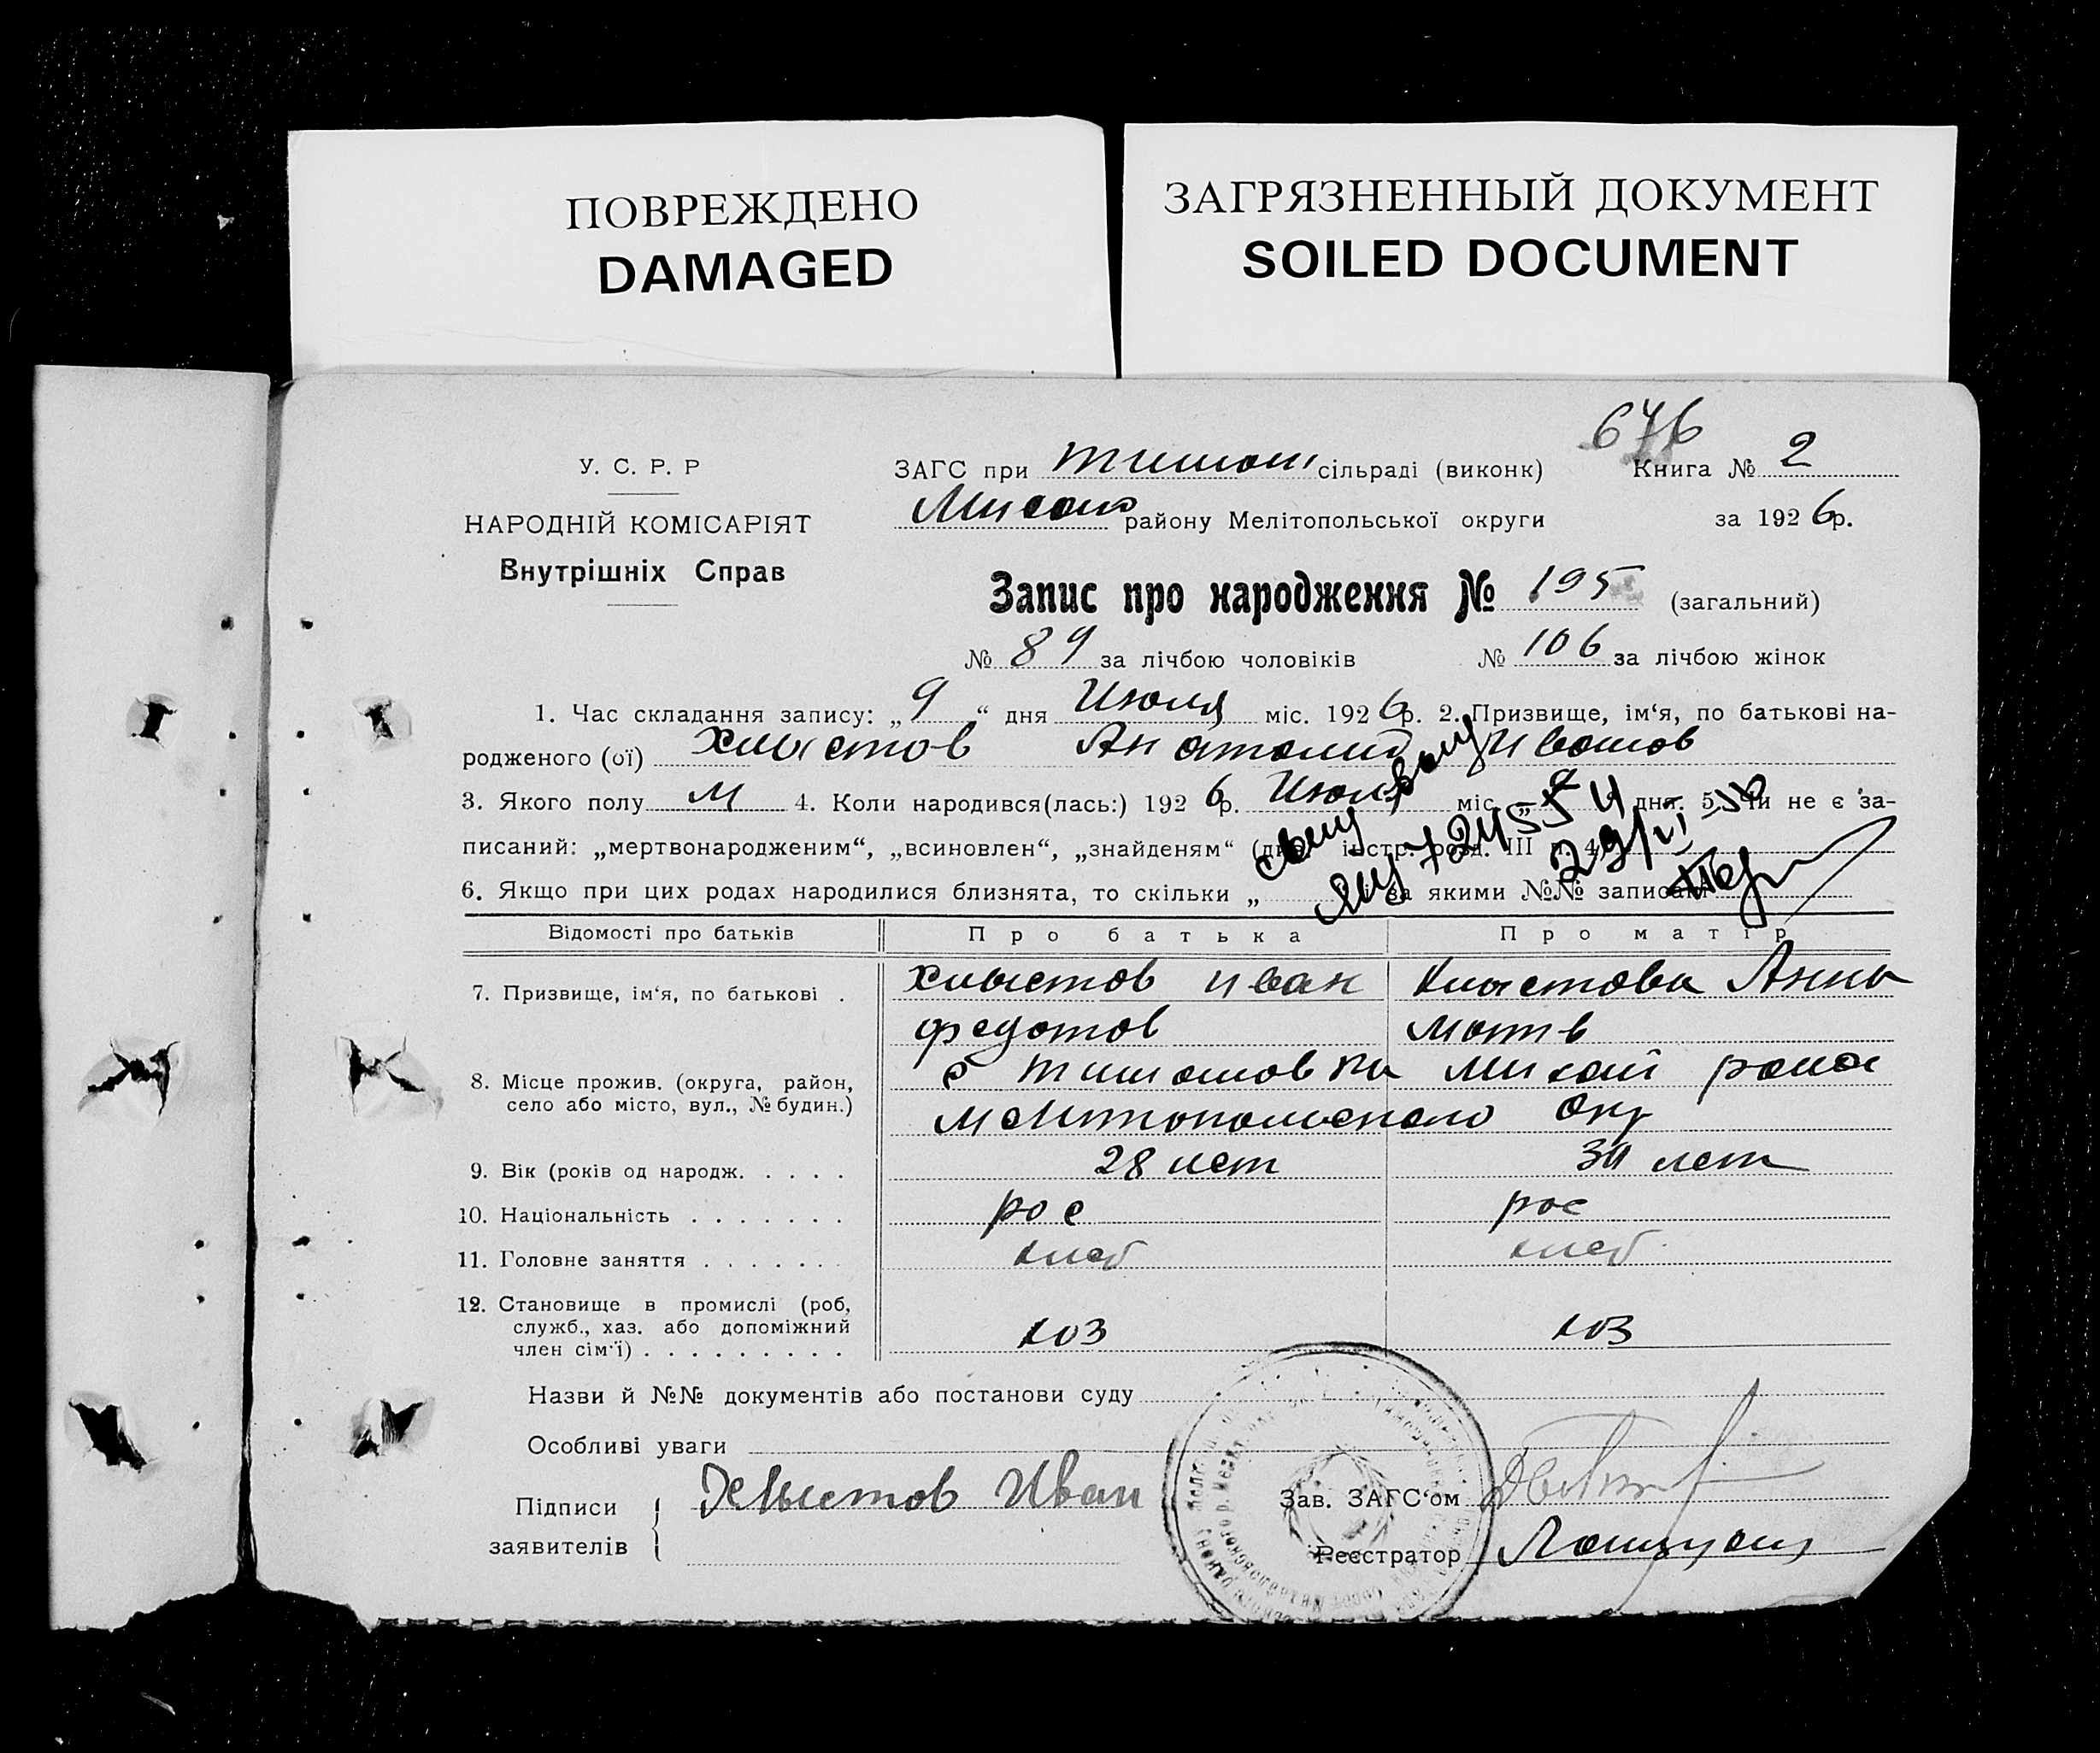 ПОВРЕЖДЕНО
DAMAGED
ЗАГРЯЗНЕННЫЙ ДОКУМЕНТ
SOILED DOCUMENT
676
У. С. Р. Р
НАРОДНІЙ КОМІСАРІЯТ
Внутрішніх Справ
ЗАГС при Тимош сільраді (виконк)
Книга № 2
району Мелітопольської округи
за 1926р.
Запис про народження № 195 (загальний)
№ 89 за лічбою чоловіків № 106 за лічбою жінок
1. Час складання запису: „9“ дня Июля міс. 1926р. 2. Призвище, ім‘я, по батькові на-
родженого (ої) Хлыстов Анатолий Иванов
3. Якого полу м 4. Коли народився(лась:) 1926р. Июля міс. 4 дня. 5. Чи не є за-
писаний: „мертвонародженим“, „всиновлен“, „знайденям“ інстр. розд. III п. 4)
6. Якщо при цих родах народилися близнята, то скільки „ і за якими №№ записані
Відомості про батьків Про батька Про матір
7. Призвище, ім‘я, по батькові . Хлыстов Иван Хлыстова Анна
Федотов Матв
8. Місце прожив. (округа, район, село або місто, вул., № будин.) с Тимошовка Михай рона
Мелитопольского Окр
9. Вік (років од народж. . . . . 28 лет 30 лет
10. Національність . . . . . . . рос рос
11. Головне заняття . . . . . . . хлеб хлеб
12. Становище в промислі (роб, служб., хаз. або допоміжний член сім‘ї) . . . . . . . . . хоз хоз
Назви й №№ документів або постанови суду
Особливі уваги
Підписи заявителів Хлыстов Иван
Зав. ЗАГС‘ом
Реєстратор